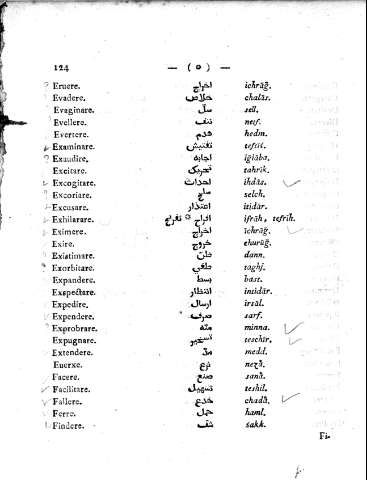 124 — ( ٥ ) —
Eruere. اخراج ichrāğ.
Evadere. خلاص chalās.
Evaginare. سلّ sell.
Evellere. نتف netf.
Evertere. هدم hedm.
Examinare. تفتيش teftiš.
Exaudire. اجابه iğiāba.
Excitare. تحريك tahrik.
Excogitare. احداث ihdās.
Excoriare. سلخ selch.
Excusare. اعتذار itidār.
Exhilarare. افراح * تفريح ifrāh, tefrih.
Eximere. اخراج ichrāğ.
Exire. خروج churūğ.
Existimare. ظنّ dann.
Exorbitare. طغي taghj.
Expandere. بسط bast.
Exspectare. انتظار intidār.
Expedire. ارسال irsāl.
Expendere. صرف sarf.
Exprobrare. منّه minna.
Expugnare. تسخير teschir.
Extendere. مدّ medd.
Euerxe. نزع
Facere. صنع sanā.
Facilitare. تسهيل teshil.
Fallere. خدع chadā.
Ferre. حمل haml.
Findere. شقّ šakk.
Fi-